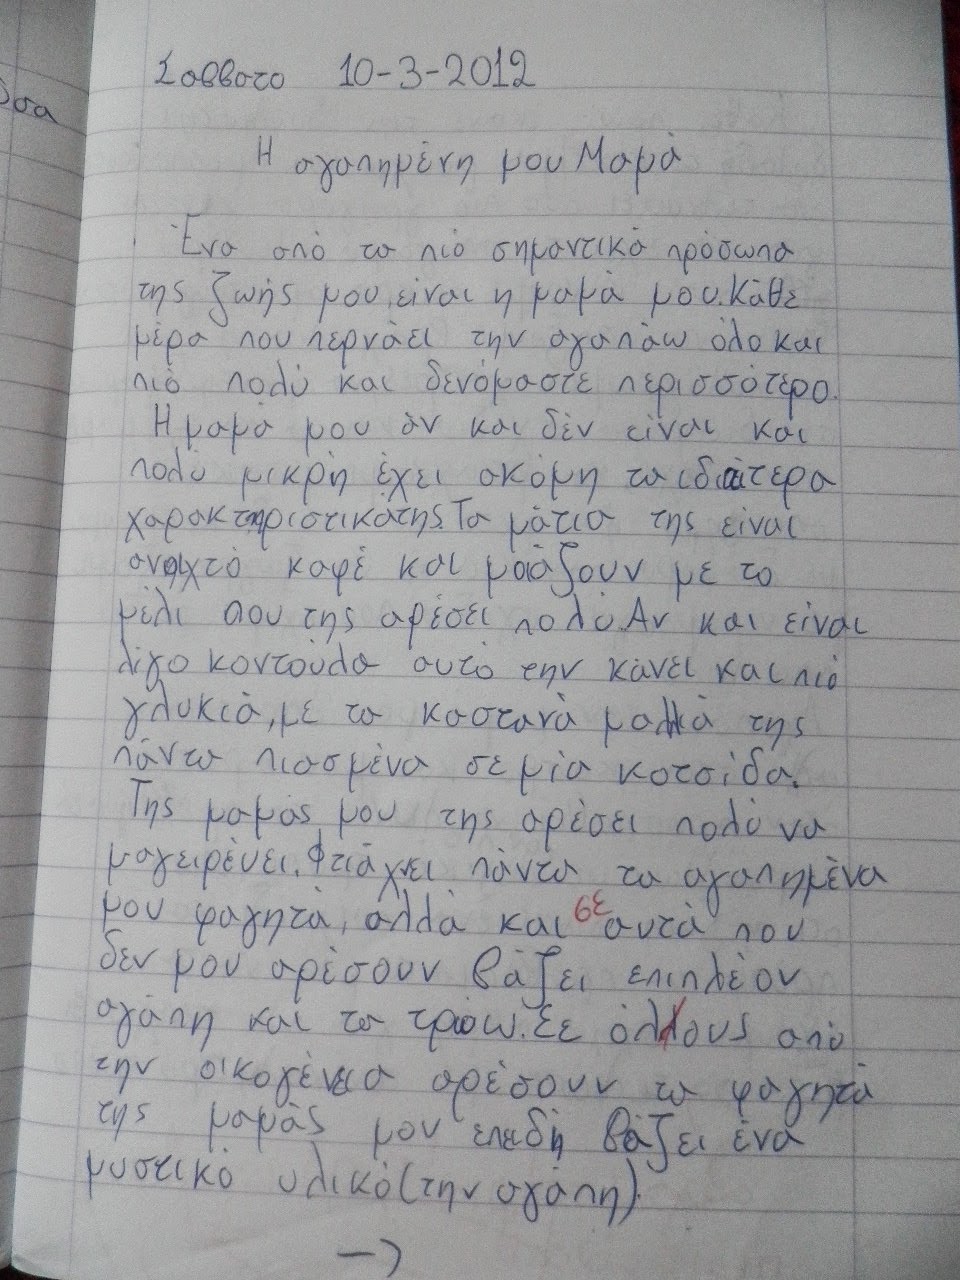 δσα
Σαββατο 10-3-2012
Η αγαπημένη μου Μαμά
Ένα από τα πιό σημαντικά πρόσωπα
της ζωής μου, είναι η μαμά μου. Κάθε
μέρα που περνάει την αγαπάω όλο και
πιό πολύ και δενόμαστε περισσότερο.
Η μαμά μου άν και δέν είναι και
πολύ μικρή έχει ακόμη τα ιδιαίτερα
χαρακτηριστικά της. Τα μάτια της είναι
ανοιχτό καφέ και μοιάζουν με το
μέλι που της αρέσει πολύ. Αν και είναι
λίγο κοντούλα αυτό την κάνει και πιό
γλυκιά, με τα καστανά μαλλιά της
πάντα πιασμένα σε μία κοτσίδα.
Της μαμάς μου της αρέσει πολύ να
μαγειρέυει. Φτιάχνει πάντα τα αγαπημένα
μου φαγητά, αλλά και σε αυτά που
δεν μου αρέσουν βάζει επιπλέον
αγάπη και τα τρώω. Σε όλους από
την οικογένεια αρέσουν τα φαγητά
της μαμάς μου επεδή βάζει ένα
μυστικό υλικό (την αγάπη).
→